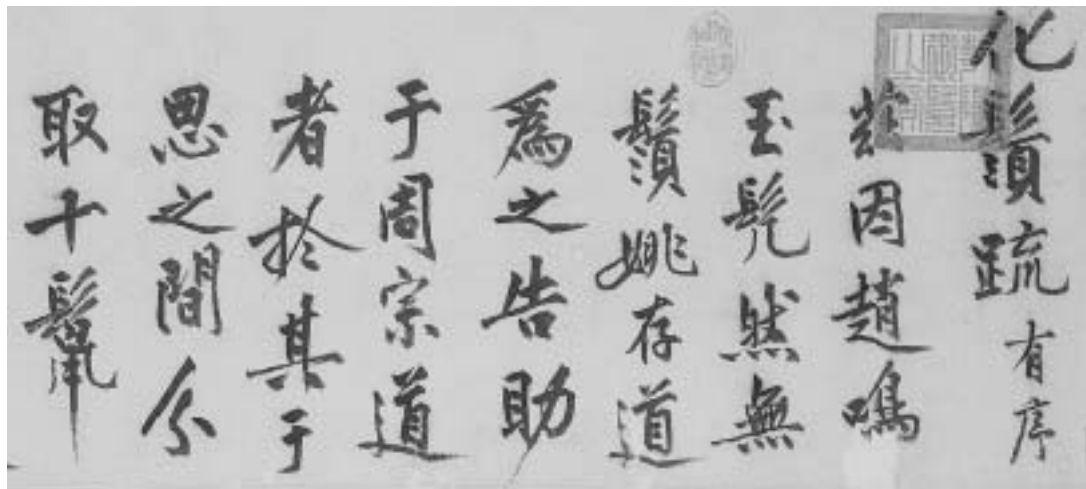 化鬚疏有序
茲因趙鳴
玉髠然無
鬚姚存道
爲之告助
于周宗道
者於其于
思之間分
取十鬣